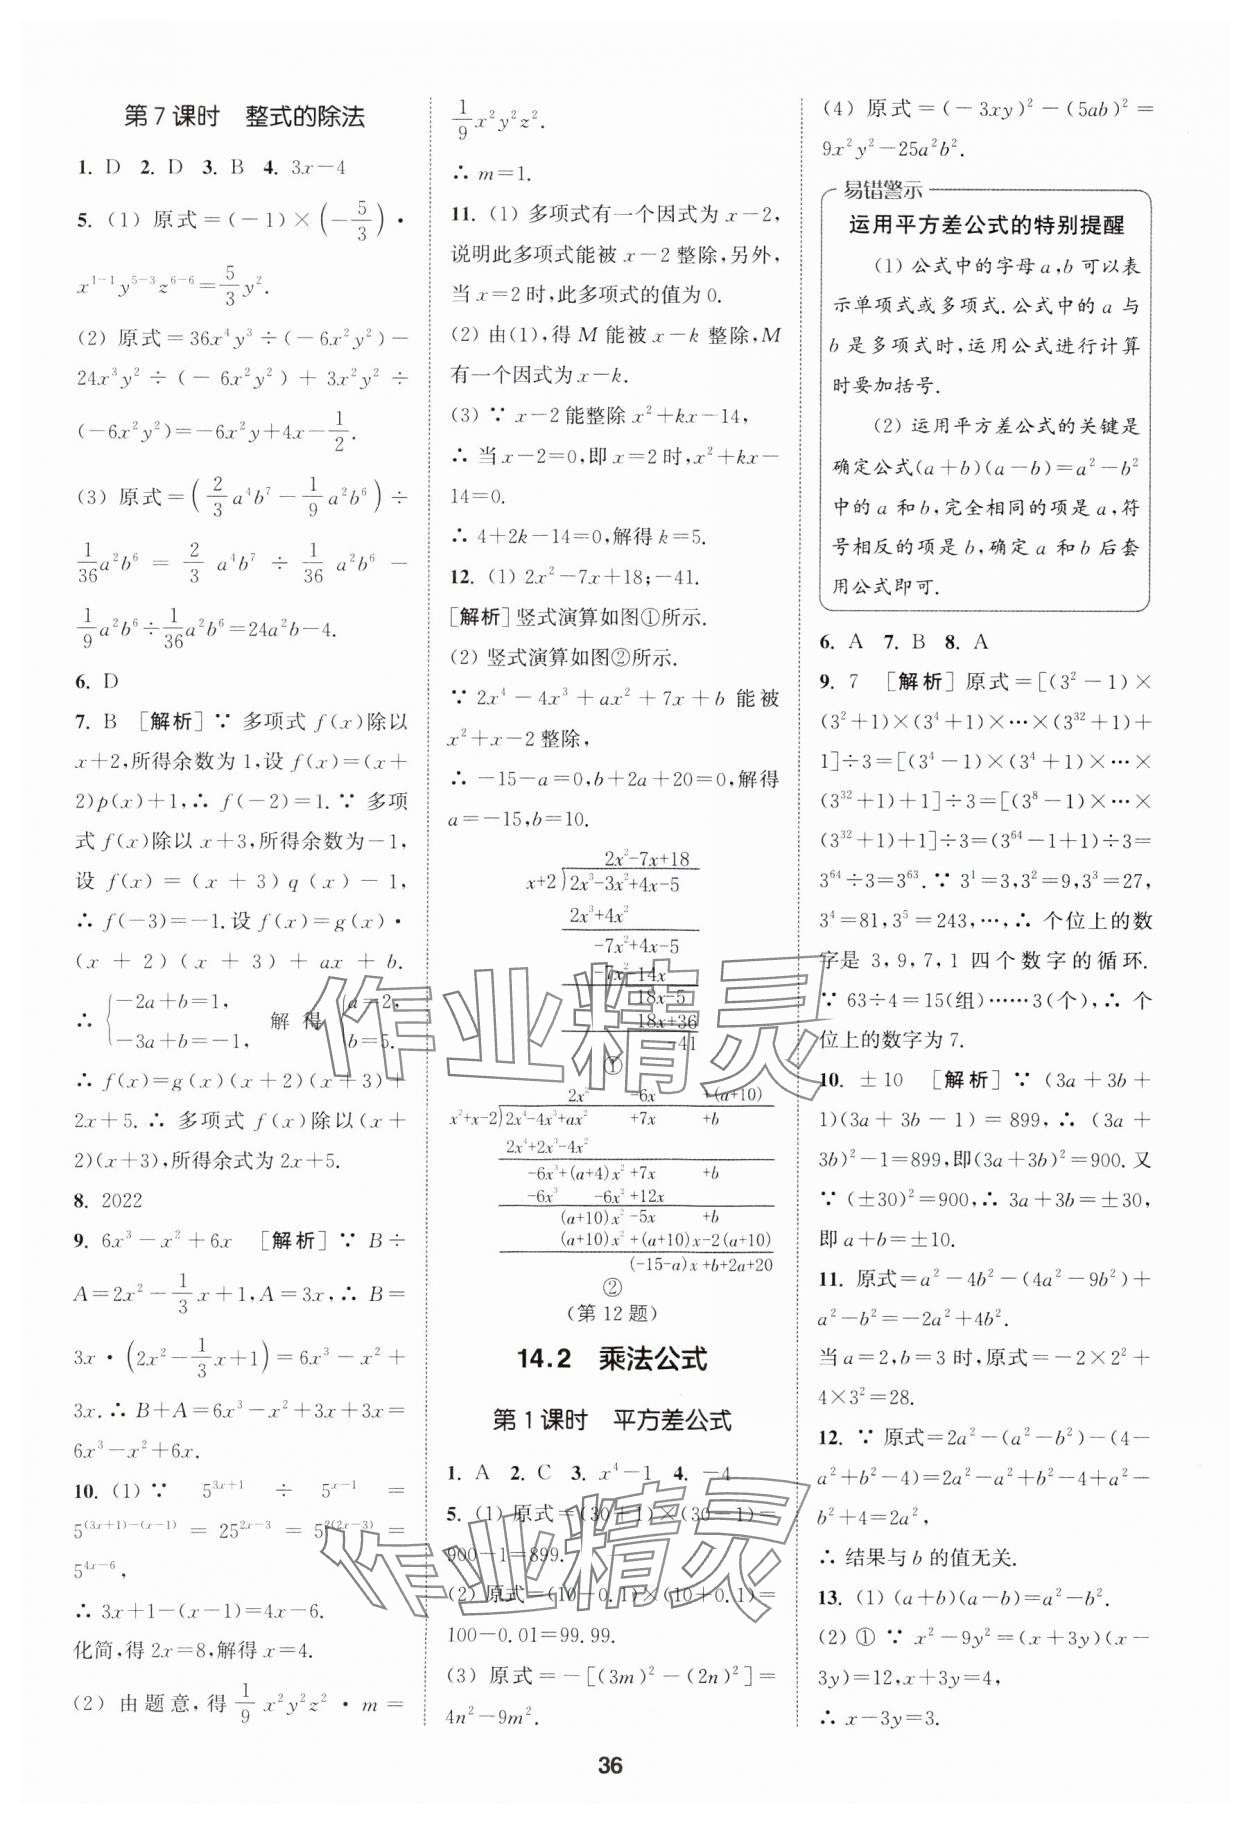 第7课时 整式的除法
1. D 2. D 3. B 4. 3x-4
5. (1) 原式=(-1)×(-5/3)·
x^{1-1}y^{5-3}z^{6-6}=5/3 y².
(2) 原式=36x⁴y³÷(-6x²y²)-
24x³y²÷(-6x²y²)+3x²y²÷
(-6x²y²)=-6x²y+4x-1/2.
(3) 原式=(2/3 a⁴b⁷-1/9 a²b⁶)÷
1/36 a²b⁶=2/3 a⁴b⁷÷1/36 a²b⁶-
1/9 a²b⁶÷1/36 a²b⁶=24a²b-4.
6. D
7. B [解析]∵ 多项式 f(x)除以
x+2,所得余数为1,设 f(x)=(x+
2)p(x)+1,∴ f(-2)=1.∵ 多项
式 f(x)除以 x+3,所得余数为-1,
设 f(x)=(x+3)q(x)-1,
∴ f(-3)=-1.设 f(x)=g(x)·
(x+2)(x+3)+ax+b.
∴ {-2a+b=1, -3a+b=-1, 解得 {a=2, b=5.
∴ f(x)=g(x)(x+2)(x+3)+
2x+5.∴ 多项式 f(x)除以(x+
2)(x+3),所得余式为2x+5.
8. 2022
9. 6x³-x²+6x [解析]∵ B÷
A=2x²-1/3 x+1,A=3x,∴ B=
3x·(2x²-1/3 x+1)=6x³-x²+
3x.∴ B+A=6x³-x²+3x+3x=
6x³-x²+6x.
10. (1) ∵ 5^{3x+1}÷5^{x-1}=
5^{(3x+1)-(x-1)}=25^{2x-3}=5^{2(2x-3)}=
5^{4x-6},
∴ 3x+1-(x-1)=4x-6.
化简,得2x=8,解得x=4.
(2) 由题意,得 1/9 x²y²z²·m=
1/9 x²y²z².
∴ m=1.
11. (1) 多项式有一个因式为 x-2,
说明此多项式能被 x-2整除,另外,
当 x=2时,此多项式的值为0.
(2) 由(1),得 M 能被 x-k 整除,M
有一个因式为x-k.
(3) ∵ x-2能整除 x²+kx-14,
∴ 当x-2=0,即x=2时,x²+kx-
14=0.
∴ 4+2k-14=0,解得k=5.
12. (1) 2x²-7x+18;-41.
[解析]竖式演算如图①所示.
(2) 竖式演算如图②所示.
∵ 2x⁴-4x³+ax²+7x+b 能被
x²+x-2整除,
∴ -15-a=0,b+2a+20=0,解得
a=-15,b=10.
2x²-7x+18
x+2)2x³-3x²+4x-5
2x³+4x²
-7x²+4x-5
-7x²-14x
18x-5
18x+36
-41
①
2x² -6x +(a+10)
x²+x-2)2x⁴-4x³+ax² +7x +b
2x⁴+2x³-4x²
-6x³+(a+4)x² +7x +b
-6x³ -6x² +12x
(a+10)x² -5x +b
(a+10)x² +(a+10)x-2(a+10)
(-15-a)x +b+2a+20
②
(第12题)
14.2 乘法公式
第1课时 平方差公式
1. A 2. C 3. x⁴-1 4. -4
5. (1) 原式=(30+1)×(30-1)=
900-1=899.
(2) 原式=(10-0.1)×(10+0.1)=
100-0.01=99.99.
(3) 原式=-[(3m)²-(2n)²]=
4n²-9m².
(4) 原式=(-3xy)²-(5ab)²=
9x²y²-25a²b².
易错警示
运用平方差公式的特别提醒
(1) 公式中的字母a,b可以表
示单项式或多项式.公式中的 a 与
b 是多项式时,运用公式进行计算
时要加括号.
(2) 运用平方差公式的关键是
确定公式(a+b)(a-b)=a²-b²
中的 a 和 b,完全相同的项是a,符
号相反的项是 b,确定 a 和 b 后套
用公式即可.
6. A 7. B 8. A
9. 7 [解析]原式=[(3²-1)×
(3²+1)×(3⁴+1)×…×(3³²+1)+
1]÷3=[(3⁴-1)×(3⁴+1)×…×
(3³²+1)+1]÷3=[(3⁸-1)×…×
(3³²+1)+1]÷3=(3⁶⁴-1+1)÷3=
3⁶⁴÷3=3⁶³.∵ 3¹=3,3²=9,3³=27,
3⁴=81,3⁵=243,…,∴ 个位上的数
字是 3,9,7,1 四个数字的循环.
∵ 63÷4=15(组)……3(个),∴ 个
位上的数字为7.
10. ±10 [解析]∵ (3a+3b+
1)(3a+3b-1)=899,∴ (3a+
3b)²-1=899,即(3a+3b)²=900.又
∵ (±30)²=900,∴ 3a+3b=±30,
即a+b=±10.
11. 原式=a²-4b²-(4a²-9b²)+
a²-b²=-2a²+4b².
当a=2,b=3时,原式=-2×2²+
4×3²=28.
12. ∵ 原式=2a²-(a²-b²)-(4-
a²+b²-4)=2a²-a²+b²-4+a²-
b²+4=2a²,
∴ 结果与b的值无关.
13. (1) (a+b)(a-b)=a²-b².
(2) ① ∵ x²-9y²=(x+3y)(x-
3y)=12,x+3y=4,
∴ x-3y=3.
36
作业精灵
作业精灵